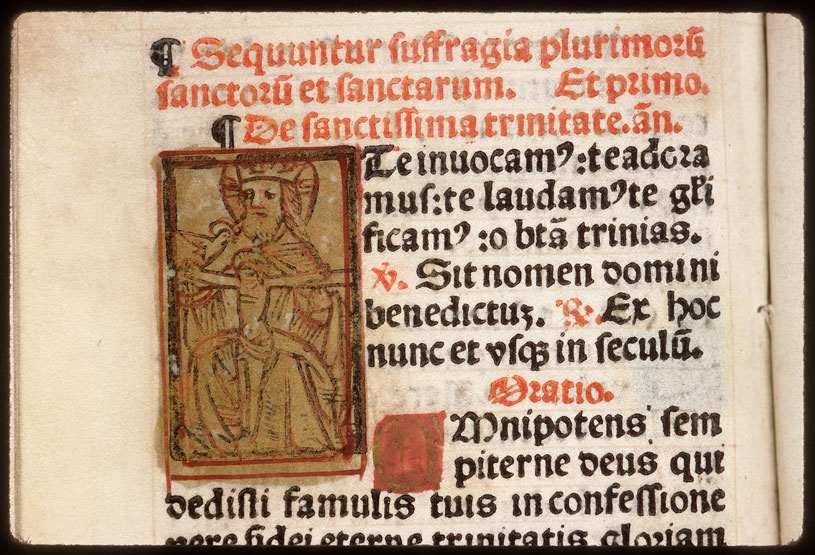 ¶ Sequuntur suffragia plurimorū
sanctorū et sanctarum. Et primo.
¶ De sanctissima trinitate. añ.
Te inuocamꝰ: te adora
mus: te laudamꝰ te głi
ficamꝰ: o btā trinias.
℣. Sit nomen domini
benedictuꝫ. ℟. Ex hoc
nunc et vsqꝫ in seculū.
Oratio.
Omnipotens sem
piterne deus qui
dedisti famulis tuis in confessione
vere fidei eterne trinitatis gloriam